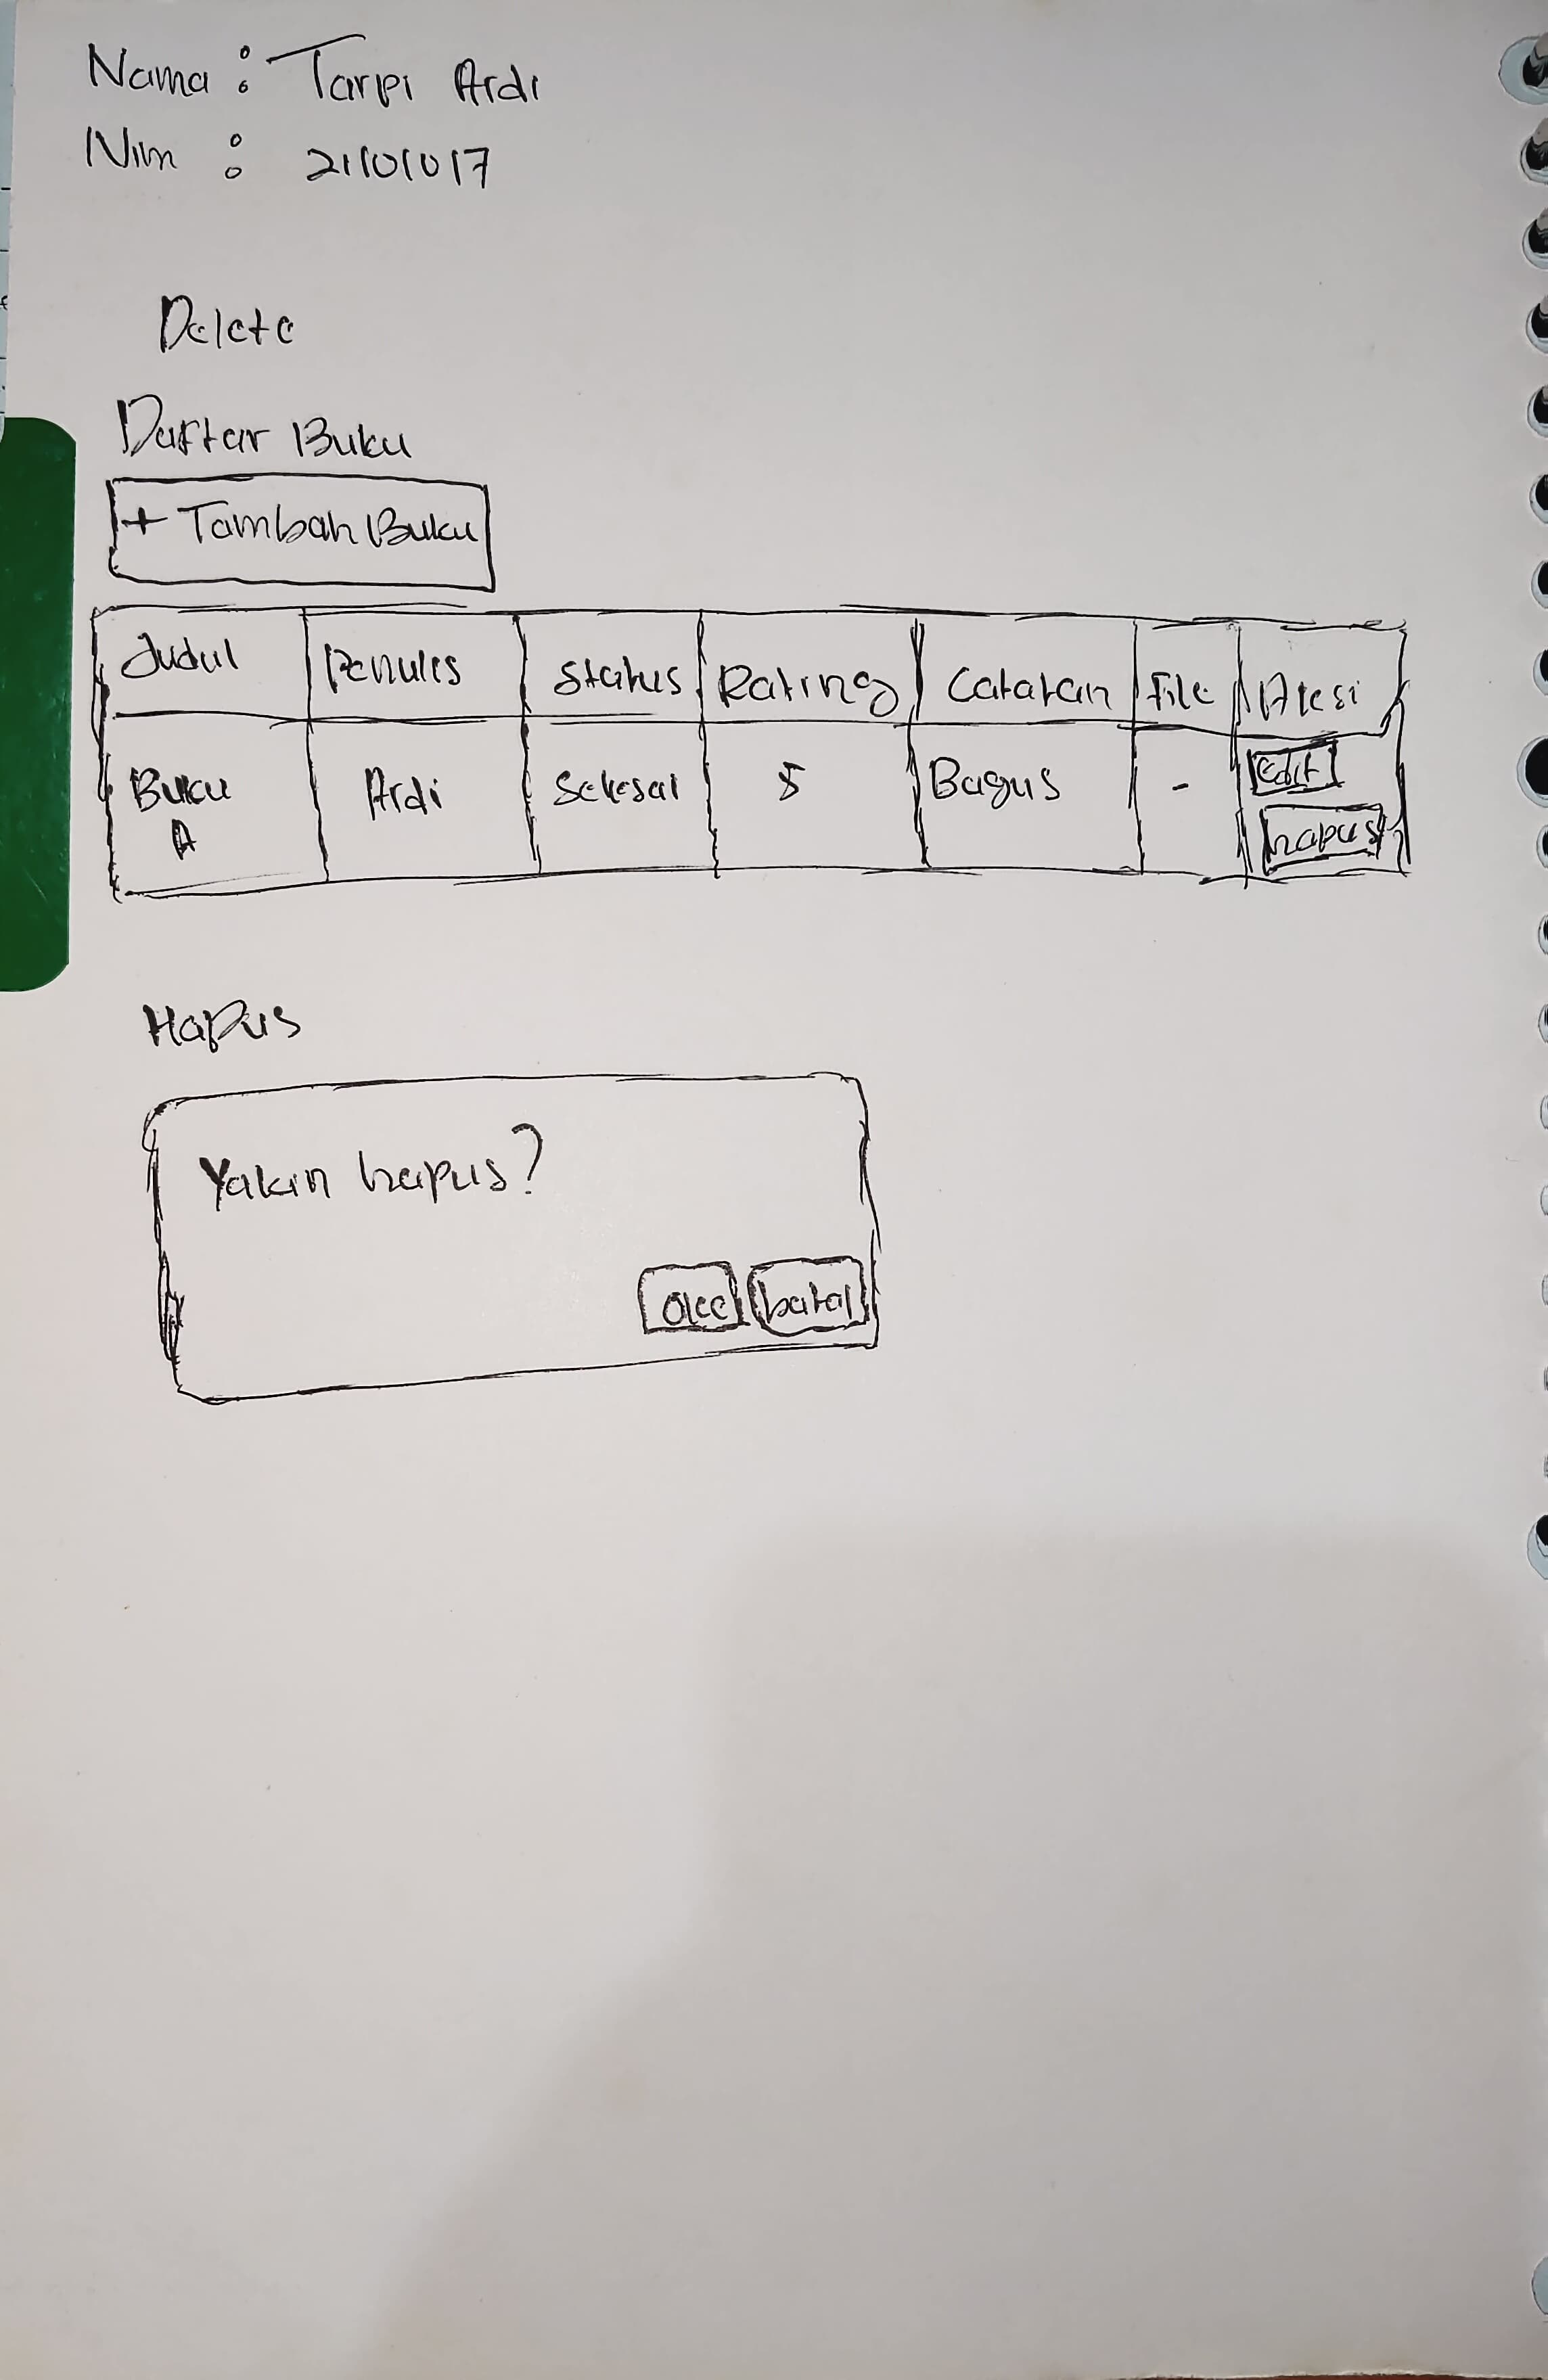 Nama : Tarpi Ardi
Nim : 21101017
Delete
Daftar Buku
+ Tambah Buku
Judul Penulis Status Rating Catatan File Aksi
Buku A Ardi Selesai 5 Bagus - Edit hapus
Hapus
Yakin hapus?
oke batal